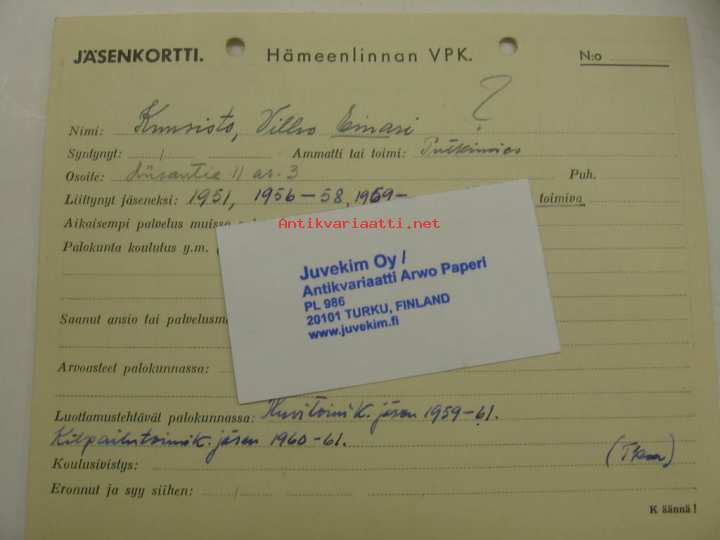 JÄSENKORTTI. Hämeenlinnan VPK. N:o
?
Nimi: Kuusisto, Vilho Einari
Syntynyt: / Ammatti tai toimi: Putkimies
Osoite: 11 as. 3 Puh.
Liittynyt jäseneksi: 1951, 1956-58, 1959- toimiva
Aikaisempi palvelus muissa
Antikvariaatti.net
Palokunta koulutus y.m.
Juvekim Oy /
Antikvariaatti Arwo Paperi
PL 986
20101 TURKU, FINLAND
www.juvekim.fi
Saanut ansio tai palvelusm
Arvoasteet palokunnassa:
Luottamustehtävät palokunnassa: Huvitoimik. jäsen 1959-61.
Kilpailutoimik. jäsen 1960-61.
Koulusivistys:
Eronnut ja syy siihen: /
K äännä!